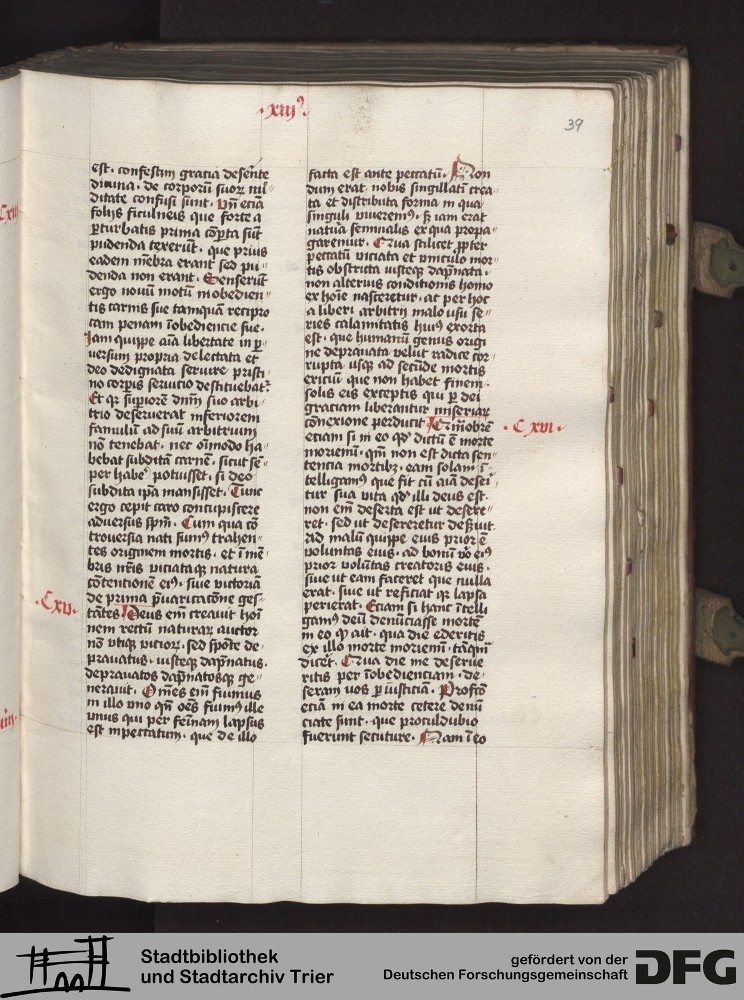 ·xiij⁹·
39
est · confestim gracia deserẽte
diuina · de corporũ suoꝝ nu-
ditate confusi sunt · vñ eciã
folijs ficulneis que forte a
ꝑturbatis prima cõꝑta sũt
pudenda texerũt · que prius
eadem mẽbra erant sed pu-
denda non erant · Senserũt
ergo nouũ motũ inobedien-
tis carnis sue tamquã recipro
cam penam ĩobediencie sue ·
Iam quippe aĩa libertate in ꝑ-
uersum propria delectata et
deo dedignata seruire pristi-
no corpis seruicio destituebat᷑
Et qꝛ suꝑiorẽ dñm suo arbi-
trio deseruerat inferiorem
famulũ ad suũ arbitrium
nõ tenebat · nec oĩmodo ha-
bebat subditã carnẽ · sicut sẽ-
per habeꝰ potuisset · si deo
subdita ipã mansisset · Tunc
ergo cepit caro concupiscere
aduersus spm̃ · Cum qua cõ-
trouersia nati sumꝰ trahen-
tes originem mortis · et ĩ mẽ-
bris nr̃is viciataqꝫ natura
cõtentionẽ eiꝰ · siue victoriã
de prima p̃uaricatõne ges-
·Cxv·
tãtes Deus em̃ creauit hoĩ
nem rectũ naturaꝝ auctor
nõ vtiqꝫ vicioꝝ · sed spõte de-
prauatus · iusteqꝫ dãpnatus ·
deprauatos dãpnatosqꝫ ge-
nerauit · Om̃es em̃ fuimus
in illo vno qñ oẽs fuimꝰ ille
vnus qui per feĩnam lapsus
est in peccatum · que de illo
facta est ante peccatũ · Non
dum erat nobis singillatĩ crea-
ta et distributa forma in qua
singuli viueremꝰ · sꝫ iam erat
natura seminalis ex qua propa-
garemur · Qua scilicet ꝓpter
peccatũ viciata et vinculo mor-
tis obstricta iusteqꝫ dãpnata ·
non alterius conditionis homo
ex hoĩe nasceretur · ac per hoc
a liberi arbitrij malo vsu se-
ries calamitatis huiꝰ exorta
est · que humanũ genus origi
ne deprauata velut radice cor-
rupta usqꝫ ad secũde mortis
exiciũ · que non habet finem ·
solis eis exceptis qui ꝑ dei
graciam liberantur miseriaꝝ
cõnexione perducit Quãobrẽ
·Cxvi·
etiam si in eo qđ dictũ ẽ morte
moriemĩ · qm̃ non est dicta sen-
tencia mortibꝫ · eam solam ĩ-
telligamꝰ que fit cũ aĩa deseri-
tur sua vita qđ illi deus est ·
non em̃ deserta est ut desere-
ret · sed ut desereretur deseruit
Ad malũ quippe eius prior ẽ
voluntas eius · ad bonũ vo᷑ eiꝰ
prior volũtas creatoris eius ·
siue ut eam faceret que nulla
erat · siue ut reficiat qꝛ lapsa
perierat · Etiam si hanc ĩtelli
gamꝰ deũ denũciasse mortẽ
in eo ꝙ ait · qua die ederitis
ex illo morte moriemĩ · tãqm̃
dicẽt · Qua die me deserue
ritis per ĩobedienciam · de-
seram uos ꝑ iusticiã · Profcõ
eciã in ea morte cetere denũ
ciate sunt · que proculdubio
fuerunt secuture · Nam ĩ eo
Stadtbibliothek
und Stadtarchiv Trier
gefördert von der
Deutschen Forschungsgemeinschaft
DFG